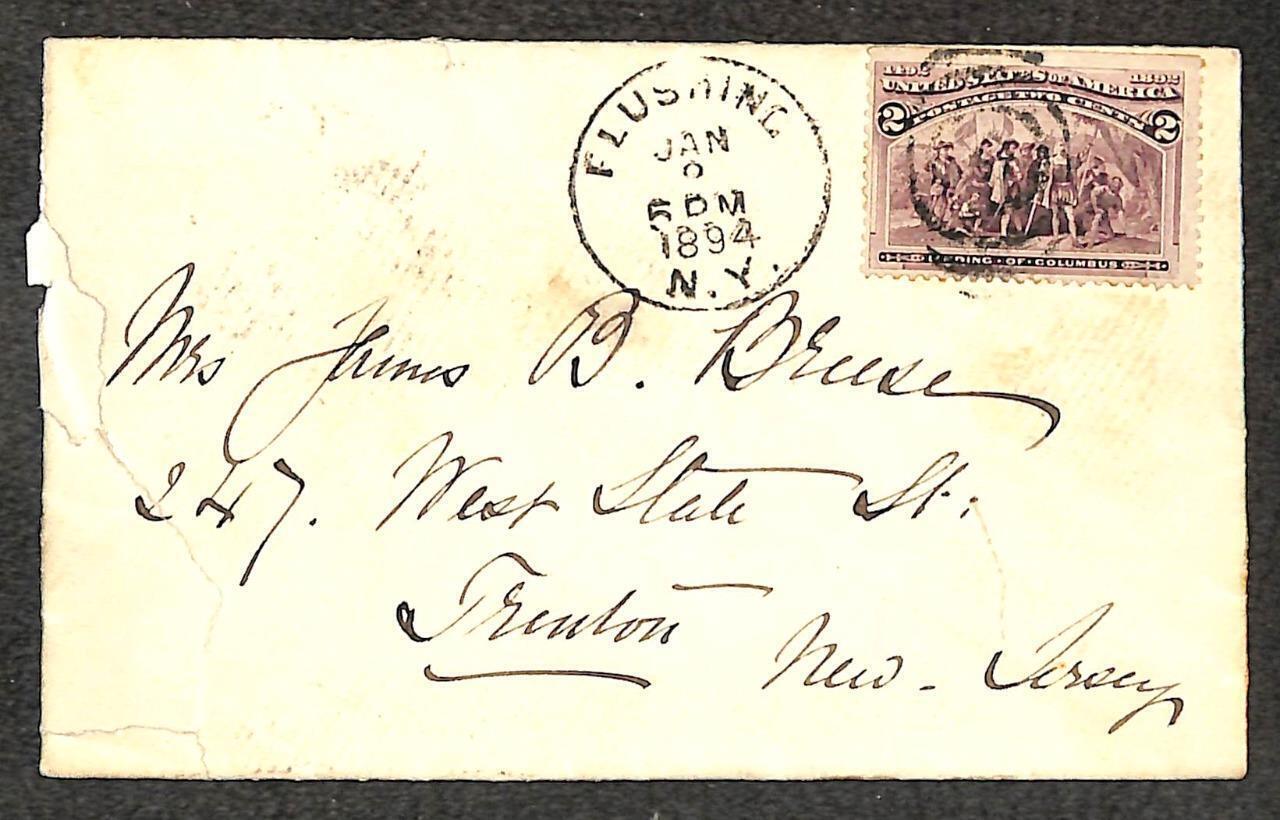 FLUSHING
JAN
5 PM
1894
N.Y.
1492 1892
UNITED STATES OF AMERICA
POSTAGE TWO CENTS
2 2
LANDING · OF · COLUMBUS
Mrs James B. Breese
247. West State St:
Trenton
New - Jersey